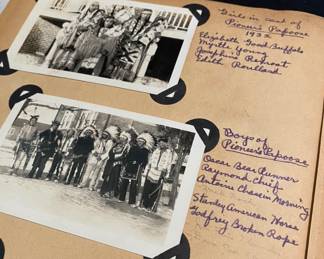 Girls in cast of
Pioneer's Papoose
193
Elizabeth Good Buffalo
Myrtle Young
Josephine Redroot
Edith Rowland
Boys of
Pioneer's Papoose
Oscar Bear Runner
Raymond Chief
Antoine Chasing Morning
Stanley American Horse
Godfrey Broken Rope